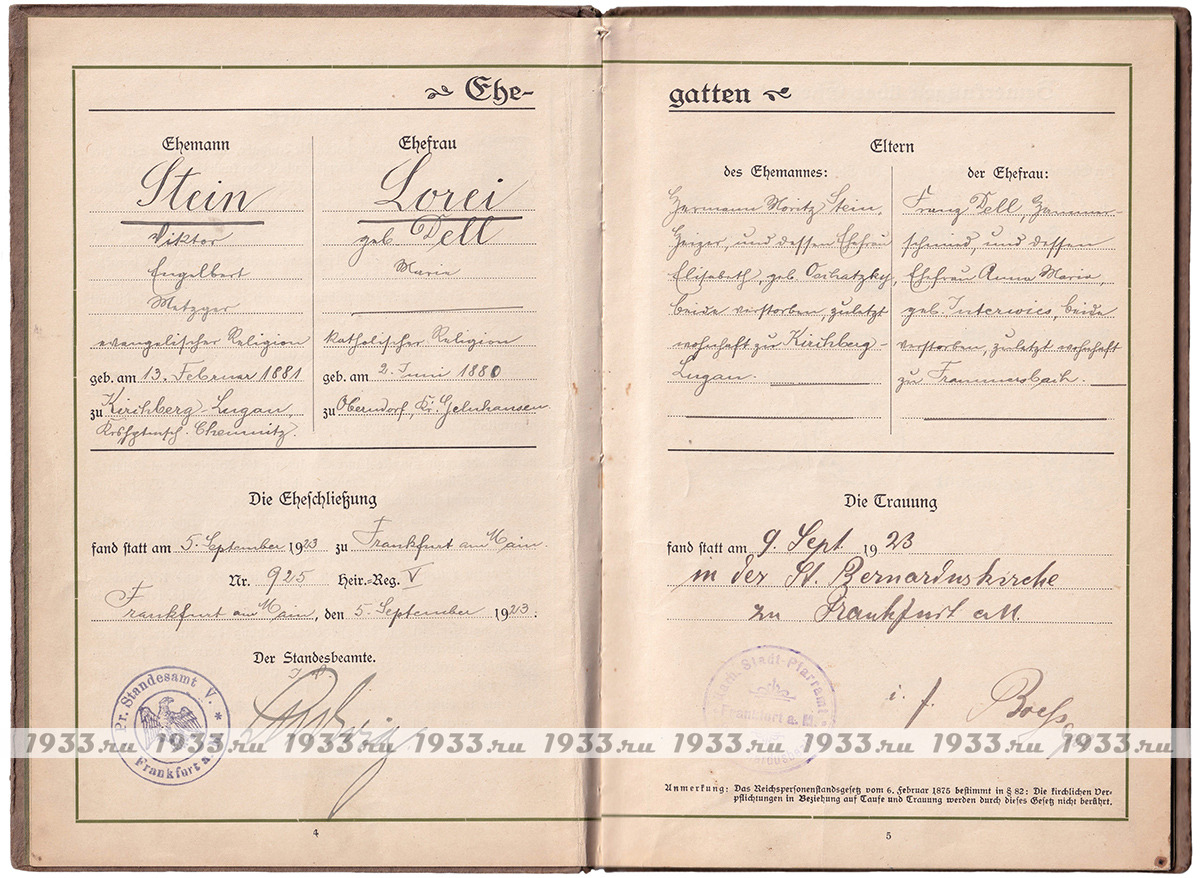 Ehe-
Ehemann
Stein
Viktor
Engelbert
Metzger
evangelischer Religion
geb. am 13. Februar 1881
zu Kirchberg-Lugau
Krshptmsch. Chemnitz.
Ehefrau
Lorei
geb. Dell
Maria
katholischer Religion
geb. am 2. Juni 1880
zu Oberndorf, Kr. Gelnhausen
Die Eheschließung
fand statt am 5. September 1923 zu Frankfurt am Main
Nr. 925 Heir.-Reg. V
Frankfurt am Main, den 5. September 1923.
Der Standesbeamte.
Pr. Standesamt V. *
Frankfurt a.
4
gatten
Eltern
des Ehemannes:
Hermann Moritz Stein,
Heizer, und dessen Ehefrau
Elisabeth, geb. Oschatzky,
beide verstorben, zuletzt
wohnhaft zu Kirchberg-
Lugau.
der Ehefrau:
Franz Dell, Hammer-
schmied, und dessen
Ehefrau Anna Maria,
geb. Interwies, beide
verstorben, zuletzt wohnhaft
zu Frammersbach.
Die Trauung
fand statt am 9. Sept. 1923
in der St. Bernarduskirche
zu Frankfurt a.M.
Kath. Stadt-Pfarramt
Frankfurt a. M.
Anmerkung: Das Reichspersonenstandsgesetz vom 6. Februar 1875 bestimmt in § 82: Die kirchlichen Ver-
pflichtungen in Beziehung auf Taufe und Trauung werden durch dieses Gesetz nicht berührt.
5
1933.ru 1933.ru 1933.ru 1933.ru 1933.ru 1933.ru 1933.ru 1933.ru 1933.ru